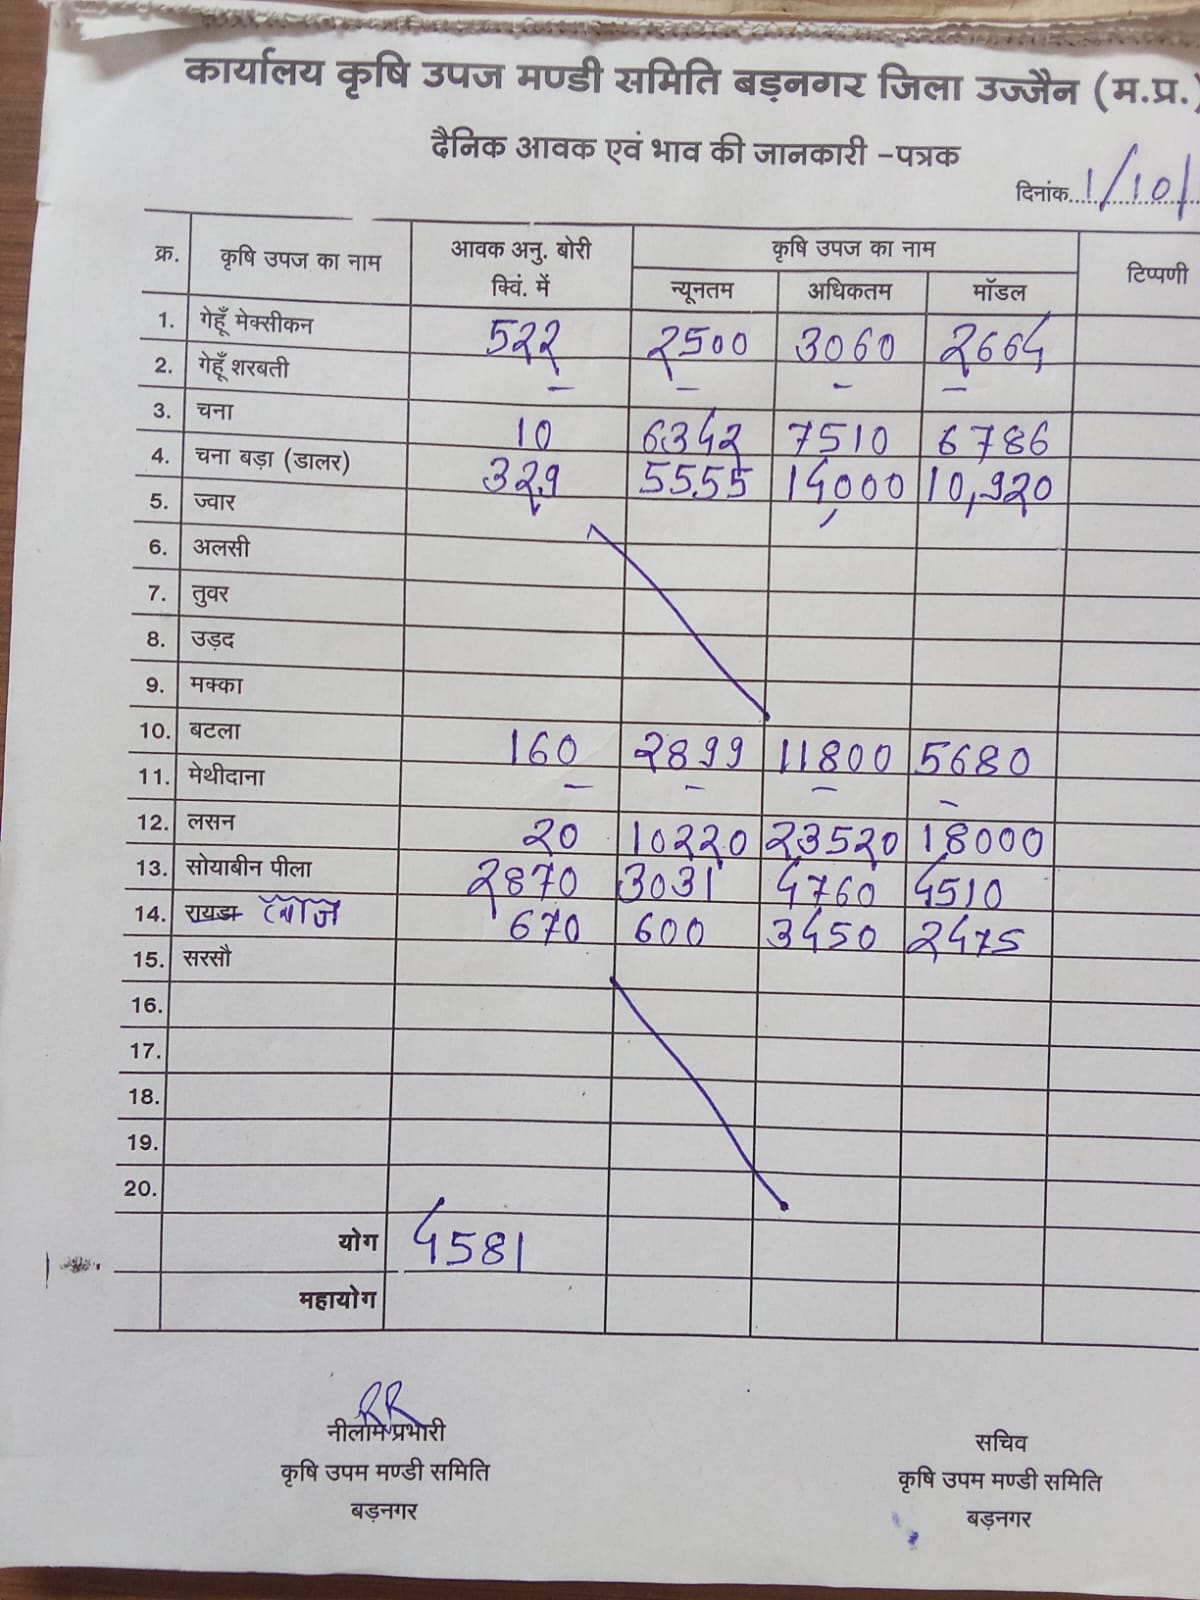 कार्यालय कृषि उपज मण्डी समिति बड़नगर जिला उज्जैन (म.प्र.)
दैनिक आवक एवं भाव की जानकारी -पत्रक
दिनांक 1/10/
क्र. कृषि उपज का नाम आवक अनु. बोरी क्विं. में कृषि उपज का नाम टिप्पणी
न्यूनतम अधिकतम मॉडल
1. गेहूँ मेक्सीकन 522 2500 3060 2664
2. गेहूँ शरबती - - - -
3. चना 10 6342 7510 6786
4. चना बड़ा (डालर) 329 5555 14000 10,920
5. ज्वार
6. अलसी
7. तुवर
8. उड़द
9. मक्का
10. बटला 160 2899 11800 5680
11. मेथीदाना - - - -
12. लसन 20 10220 23520 18000
13. सोयाबीन पीला 2870 3031 4760 4510
14. रायडा 670 600 3450 2475
15. सरसौ
16.
17.
18.
19.
20.
योग 4581
महायोग
RR
नीलाम प्रभारी
कृषि उपम मण्डी समिति
बड़नगर
सचिव
कृषि उपम मण्डी समिति
बड़नगर